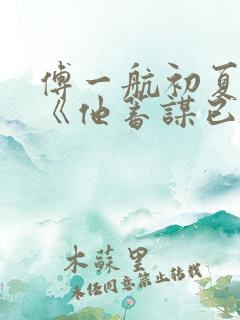 傅一航初夏
《他蓄謀已
木蘇里
未任同意禁止转载